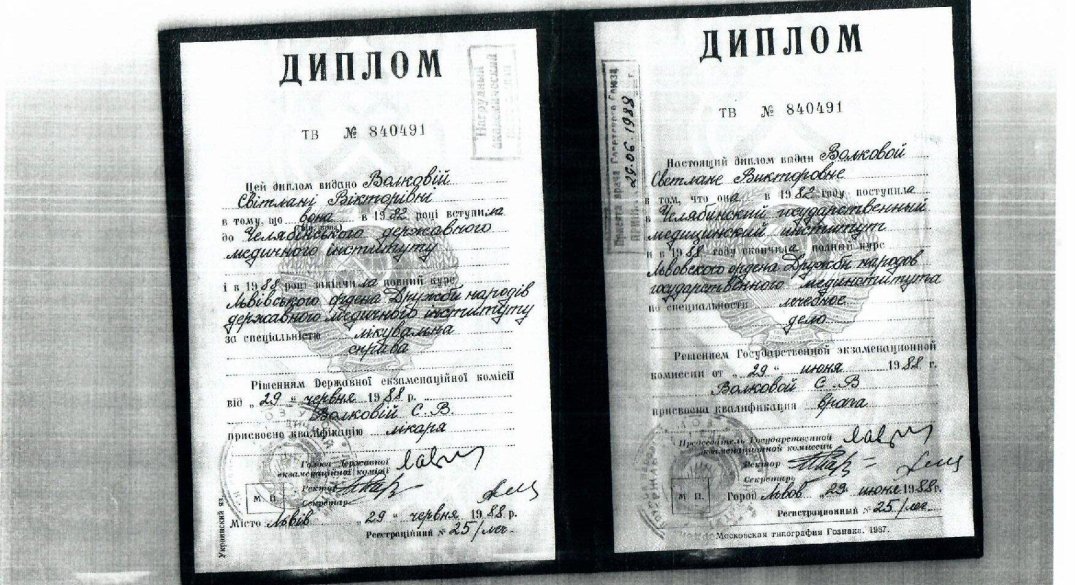 ДИПЛОМ
Нагрудный
академический
ТВ № 840491
Цей диплом видано Волковій
Світлані Вікторівні
в тому, що вона в 1982 році вступила
до Челябінського державного
медичного інституту
і в 1988 році закінчила повний курс
Львівського ордена Дружби народів
державного медичного інституту
за спеціальністю лікувальна
справа
Рішенням Державної екзаменаційної комісії
від „29“ червня 1988 р.
Волковій С. В.
присвоєно кваліфікацію лікаря
Голова Державної
екзаменаційної комісії
Ректор
Секретар
М П.
Місто Львів „29“ червня 1988 р.
Реєстраційний № 25/леч.
Украинский яз.
ДИПЛОМ
врача Советского Союза
29.06.1988 г.
ТВ № 840491
Настоящий диплом выдан Волковой
Светлане Викторовне
в том, что она в 1982 году поступила
в Челябинский государственный
медицинский институт
и в 1988 году окончила полный курс
Львовского ордена Дружбы народов
государственного мединститута
по специальности лечебное
дело
Решением Государственной экзаменационной
комиссии от „29“ июня 1988 г.
Волковой С. В
присвоена квалификация врача
Председатель Государственной
экзаменационной комиссии
Ректор
Секретарь
М П.
Город Львов „29“ июня 1988 г.
Регистрационный № 25/леч.
Московская типография Гознака. 1987.